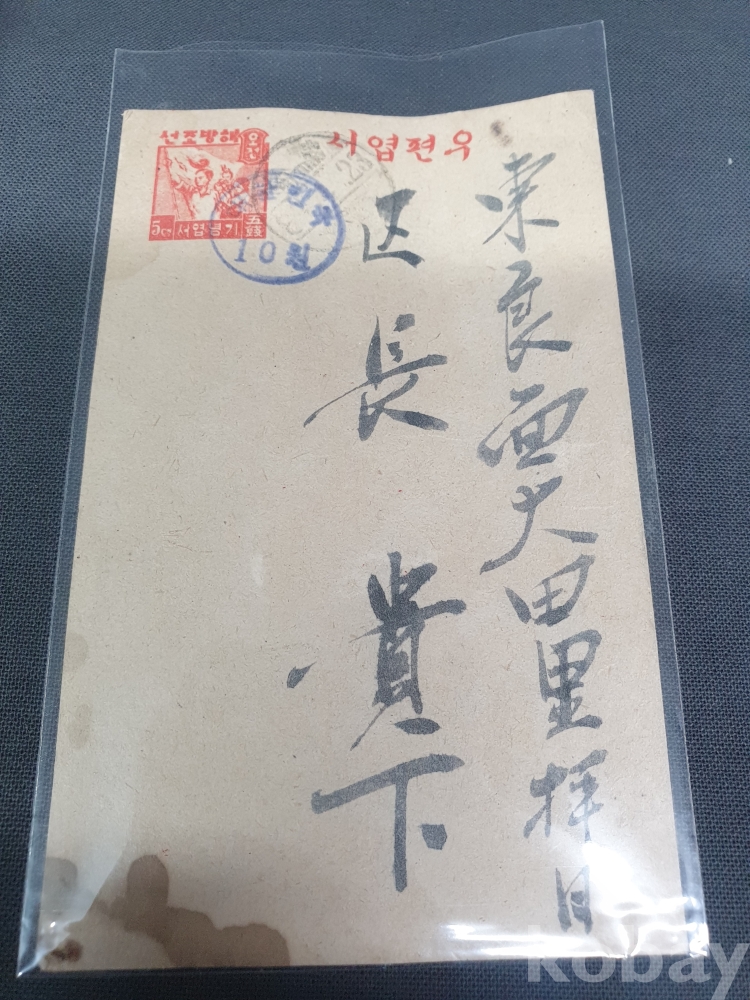 우편엽서
해방조선
기념엽서
五錢
10원
東良面大田里
区長 貴下
kobay